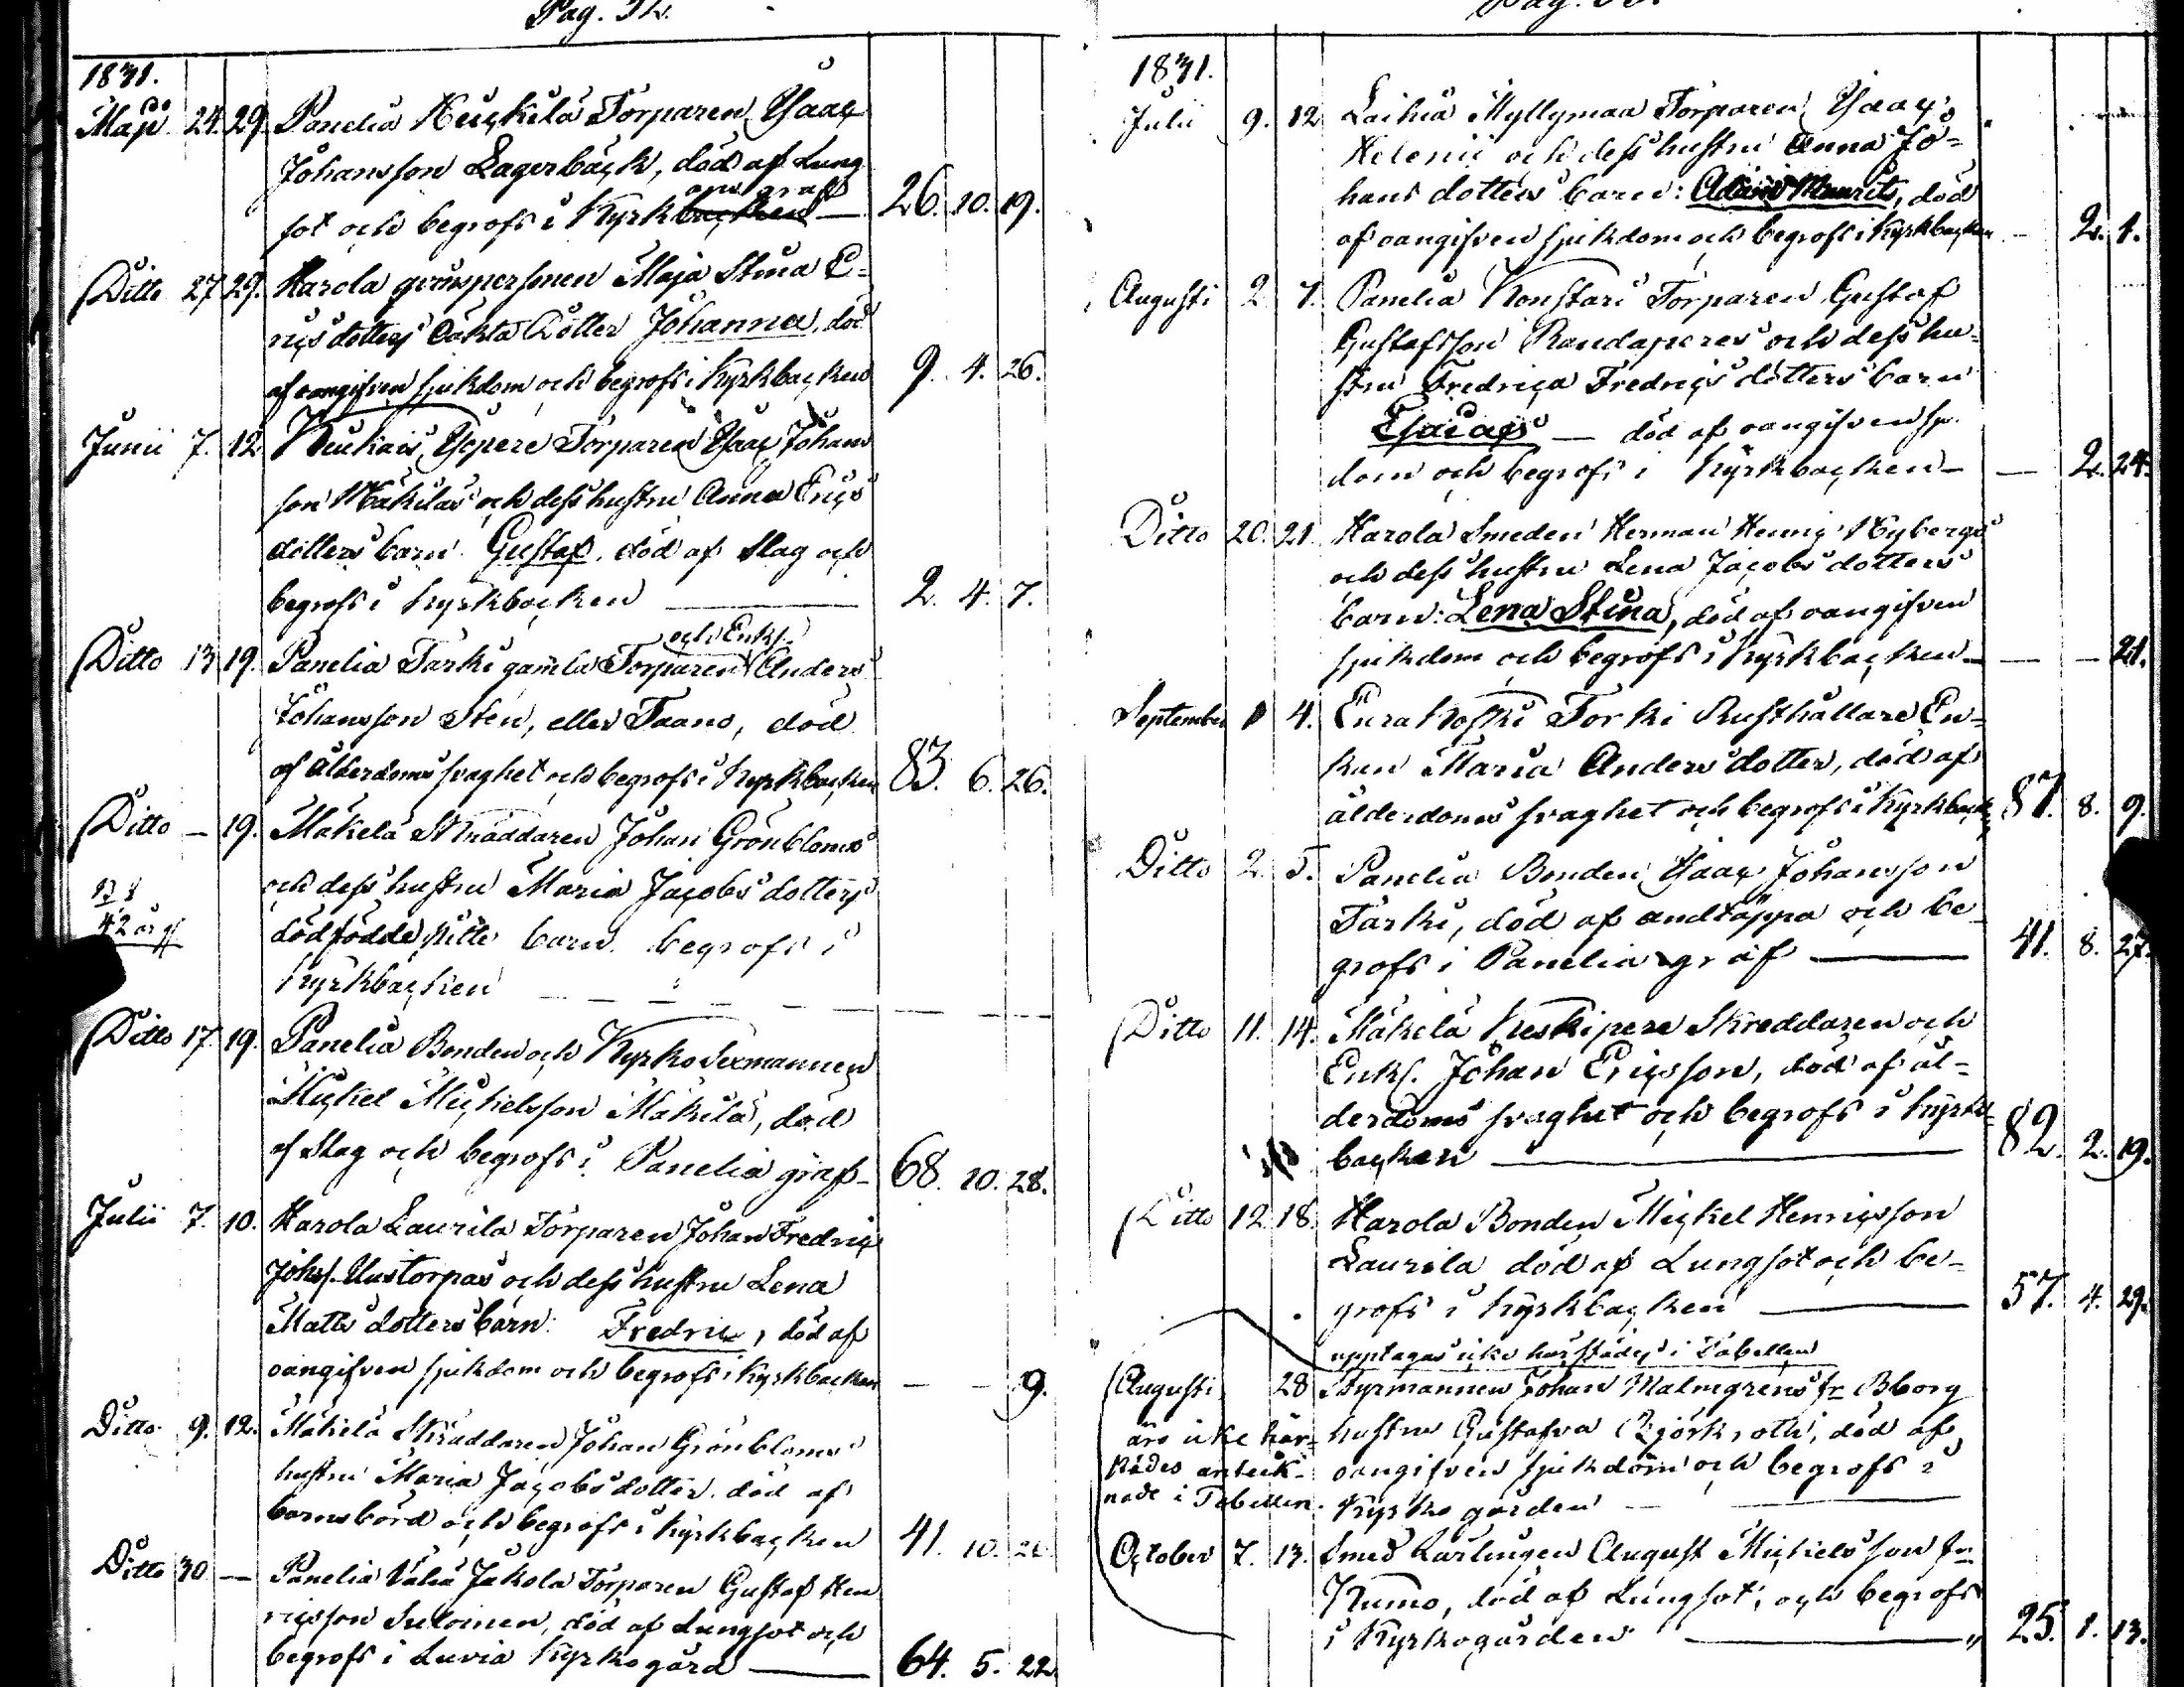 Pag. 32.
1831.
Maji 24. 29. Panelia Keuckilä Torparen Isaac
Johansson Lagerbäck, död af Lung
sot och begrofs i Kyrkbacken — 26. 10. 19.
Ditto 27 29. Harola qvinspersonen Maja Stina E-
ricsdotters oäkta Dotter Johanna, död
af oangifven sjukdom och begrofs i Kyrkbacken 9. 4. 26.
Junii 7. 12 Kiukais, Torparen Isaac Johans
son Mäkiläs och dess hustru Anna Erics
dotters barn Gustaf, död af Slag och
begrofs i Kyrkbacken — 2. 4. 7.
och Enkl.
Ditto 13 19. Panelia Tarki gamla Torparen Anders
Johansson Sten, eller Taano, död
af ålderdoms svaghet och begrofs i Kyrkbacken 83. 6. 26.
Ditto — 19. Mäkelä Skräddaren Johan Grönbloms
och dess hustru Maria Jacobs dotters
dödfödde barn begrofs i
42 år gl
Kyrkbacken
Ditto 17. 19. Panelia Bonden och Kyrko Sexmannen
Mickel Mickelsson Mäkilä, död
af Slag och begrofs i Panelia graf — 68. 10. 28.
Julii 7. 10. Harola Laurila Torparen Johan Fredric
Johss. Uustorpas och dess hustru Lena
Matts dotters barn: Fredric, död af
oangifven sjukdom och begrofs i Kyrkbacken — — 9.
Ditto 9. 12. Mäkelä Skräddaren Johan Grönbloms
hustru Maria Jacobsdotter, död af
barnsbörd och begrofs i Kyrkbacken 41. 10.
Ditto 30 — Panelia Jakola Torparen Gustaf Hen
ricsson Saloinen, död af Lungsot och
begrofs i Luvia Kyrkogård — 64. 5. 22.
1831.
Julii 9. 12 Laihia Myllymaa Torparen Isaac
Helenii och dess hustru Anna Jo-
hans dotters barn: Maurits, död
af oangifven sjukdom och begrofs i Kyrkbacken — 2. 1.
Augusti 2 7. Panelia Konstari Torparen Gustaf
Gustafsson Randaperes och dess hu-
stru Fredrica Fredrics dotters barn
Esaias — död af oangifven sju
dom och begrofs i Kyrkbacken — — 2. 24.
Ditto 20. 21. Harola Smeden Herman Henric Nybergs
och dess hustru Lena Jacobs dotters
barn: Lena Stina, död af oangifven
sjukdom och begrofs i Kyrkbacken — — — 21.
September 1 4. Eura Koski Torki Rusthållare En-
kan Maria Anders dotter, död af
ålderdoms svaghet och begrofs i Kyrkback 87. 8. 9.
Ditto 2. 5. Panelia Bonden Isaac Johansson
Tarki, död af andtäppa och be-
grofs i Panelia graf — 41. 8. 27.
Ditto 11. 14. Mäkelä Keskipere Skreddaren och
Enkl. Johan Ericsson, död af ål-
derdoms svaghet och begrofs i Kyrk-
backen — 82. 2. 19.
Ditto 12 18. Harola Bonden Mickel Henricsson
Laurila död af Lungsot och be-
grofs i Kyrkbacken — 57. 4. 29.
upptagas icke härstädes i Tabellen
Augusti 28 Styrmannen Johan Malmgrens fr. Bborg
äro icke här- hustru Gustafva Björkroth, död af
städes anteck- oangifven sjukdom och begrofs i
nade i Tabellen. Kyrko gården —
October 7. 13. Smed Lärlingen August Mickelsson fr.
Kumo, död af Lungsot, och begrofs
i Kyrkogården — 25. 1. 13.